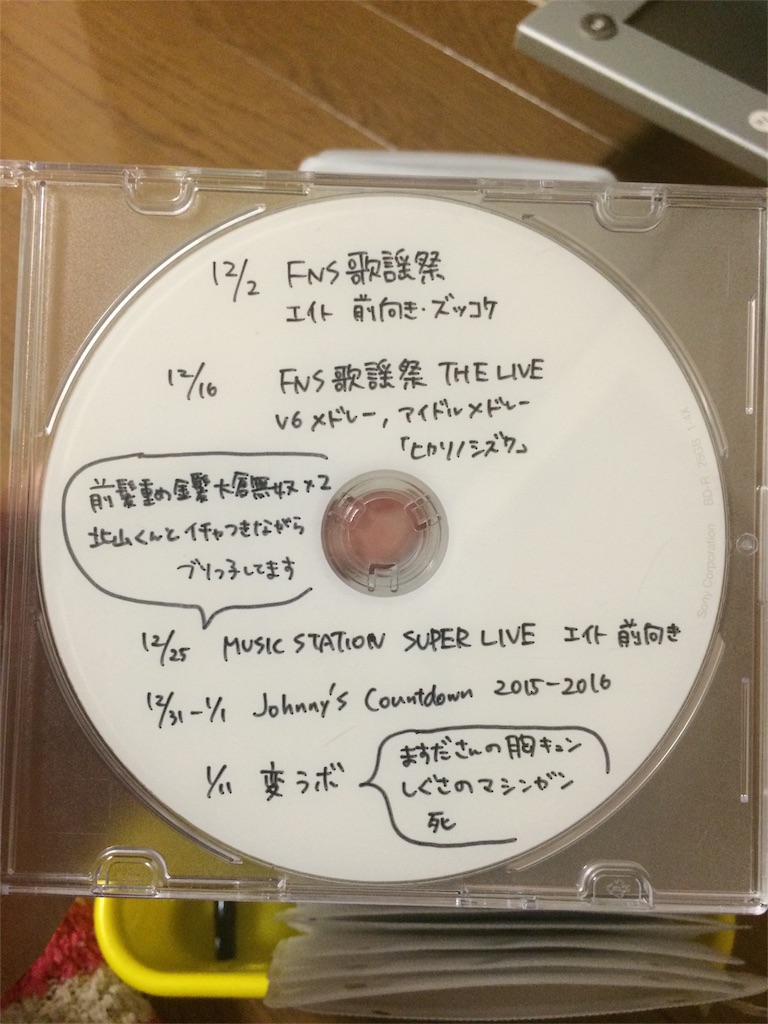 12/2 FNS歌謡祭
エイト 前向き・ズッコケ
12/16 FNS歌謡祭 THE LIVE
V6メドレー, アイドルメドレー
「ヒカリノシズク」
前髪重め金髪大倉無双×2
北山くんとイチャつきながら
ブリっ子してます
12/25 MUSIC STATION SUPER LIVE エイト 前向き
12/31-1/1 Johnny's Countdown 2015-2016
1/11 変ラボ
ますださんの胸キュン
しぐさのマシンガン
死
Sony Corporation BD-R 25GB 1-4X